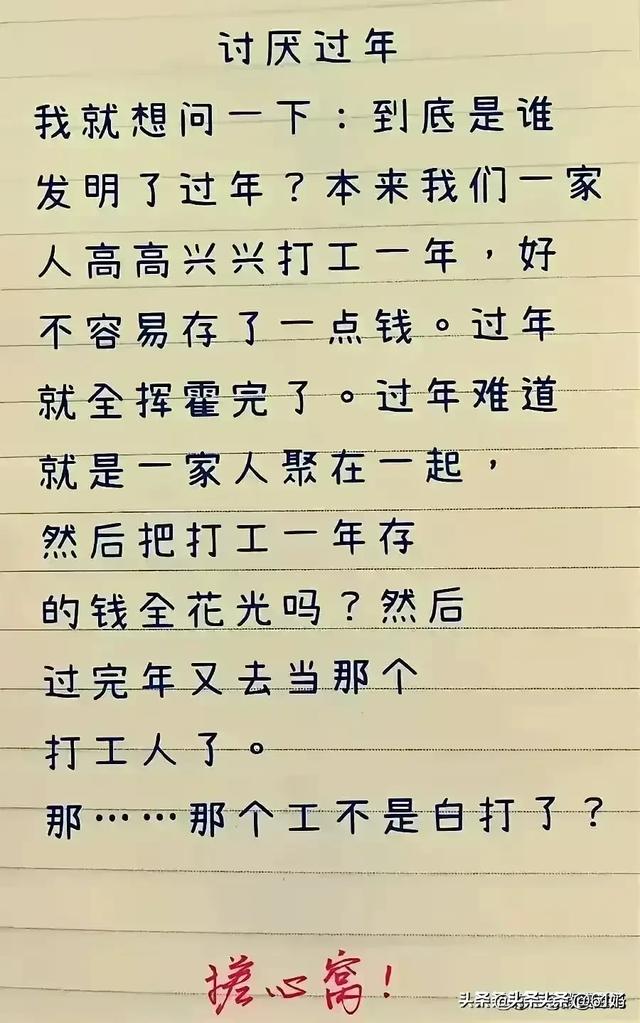 讨厌过年
我就想问一下：到底是谁
发明了过年？本来我们一家
人高高兴兴打工一年，好
不容易存了一点钱。过年
就全挥霍完了。过年难道
就是一家人聚在一起，
然后把打工一年存
的钱全花光吗？然后
过完年又去当那个
打工人了。
那……那个工不是白打了？
搓心窝！
头条